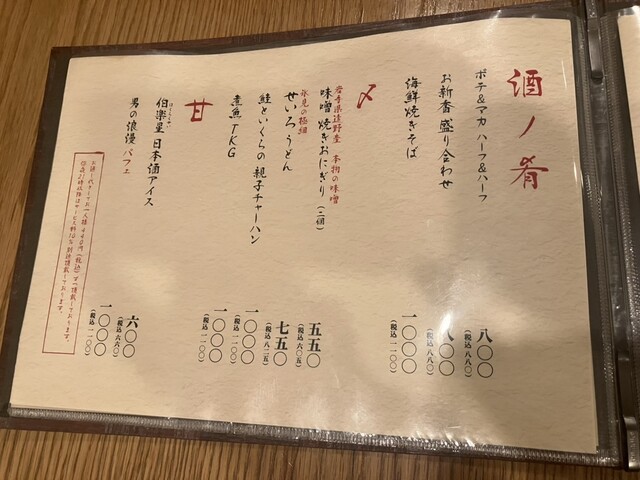 酒ノ肴
ポテ&マカ ハーフ&ハーフ
八〇〇
(税込 八八〇)
お新香 盛り合わせ
八〇〇
(税込 八八〇)
海鮮焼きそば
一〇〇〇
(税込 一一〇〇)
〆
岩手県遠野産 本物の味噌
味噌焼きおにぎり(二個)
五五〇
(税込 六〇五)
氷見の極細
せいろうどん
七五〇
(税込 八二五)
鮭といくらの親子チャーハン
一〇〇〇
(税込 一一〇〇)
煮魚TKG
一〇〇〇
(税込 一一〇〇)
甘
伯楽星 日本酒アイス
六〇〇
(税込 六六〇)
男の浪漫パフェ
一〇〇〇
(税込 一一〇〇)
お通し代としてお一人様440円(税込)すつ頂戴しております。